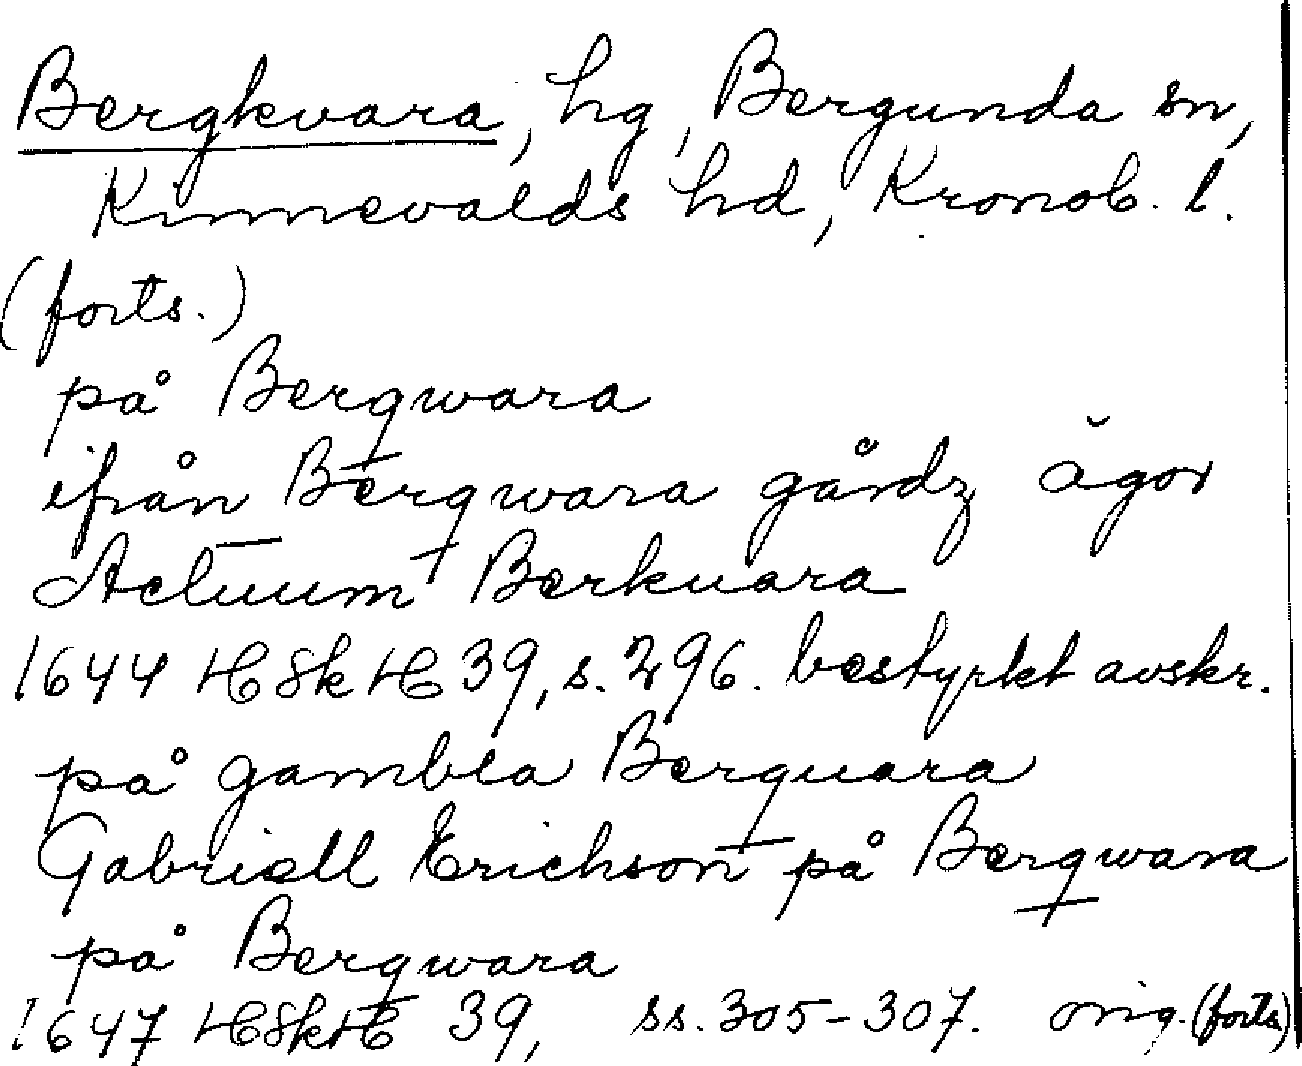 Bergkvara, hg, Bergunda sn,
Kinnevalds hd, Kronob. l.
(forts.)
på Bergwara
ifrån Bergwara gårdz ägor
Actuum Berkuara
1644 HSkH 39, s. 296. bestyrkt avskr.
på gambla Berguara
Gabriell Erichson på Bergwara
på Bergwara
1647 HSkH 39, ss. 305-307. orig. (forts)